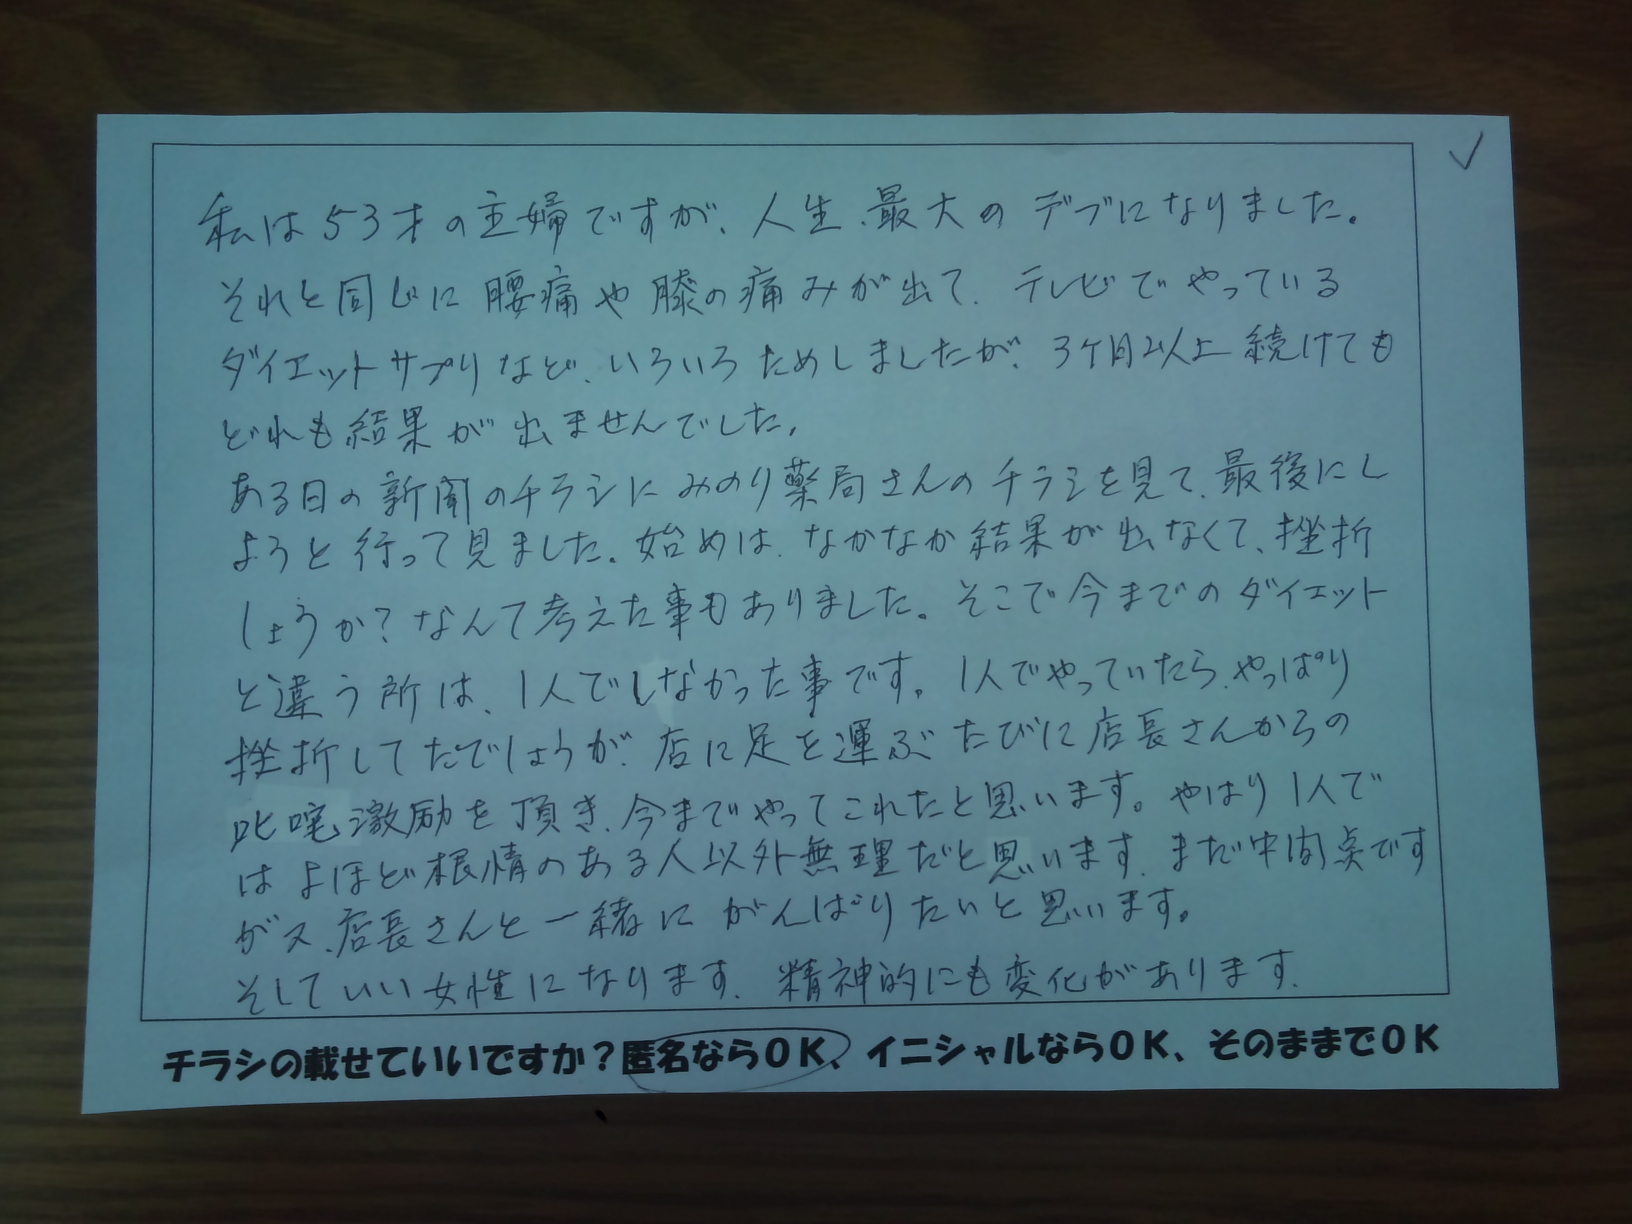 私は53才の主婦ですが、人生、最大のデブになりました。
それと同じに腰痛や膝の痛みが出て、テレビでやっている
ダイエットサプリなど、いろいろためしましたが、3ケ月以上続けても
どれも結果が出ませんでした。
ある日の新聞のチラシにみのり薬局さんのチラシを見て、最後にし
ようと行って見ました。始めは、なかなか結果が出なくて、挫折
しようか?なんて考えた事もありました。そこで今までのダイエット
と違う所は、1人でしなかった事です。1人でやっていたら、やっぱり
挫折してたでしょうが、店に足を運ぶたびに店長さんからの
叱咤激励を頂き、今までやってこれたと思います。やはり1人で
はよほど根情のある人以外無理だと思います。まだ中間点です
が、店長さんと一緒にがんばりたいと思います。
そしていい女性になります。精神的にも変化があります。
チラシの載せていいですか?匿名ならOK、イニシャルならOK、そのままでOK